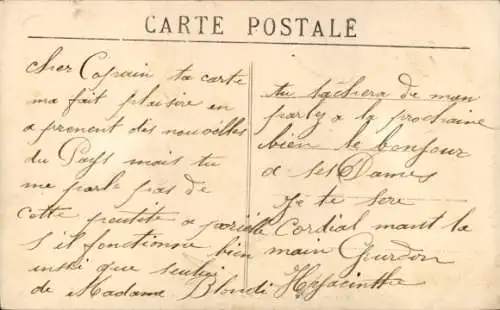 CARTE POSTALE
cher Copain ta carte
ma fait plaisire en
a prenent des nouvelles
du Pays mais tu
me parle pas de
cette peutite a parielle
s'il fonctionne bien
inski que seului
de Madame Blondi
tu tachera de man
parlez a la prochaine
bien le bonjour
a ses Dames
Je te sere
Cordial mant la
main Gourdon
Hyacinthe